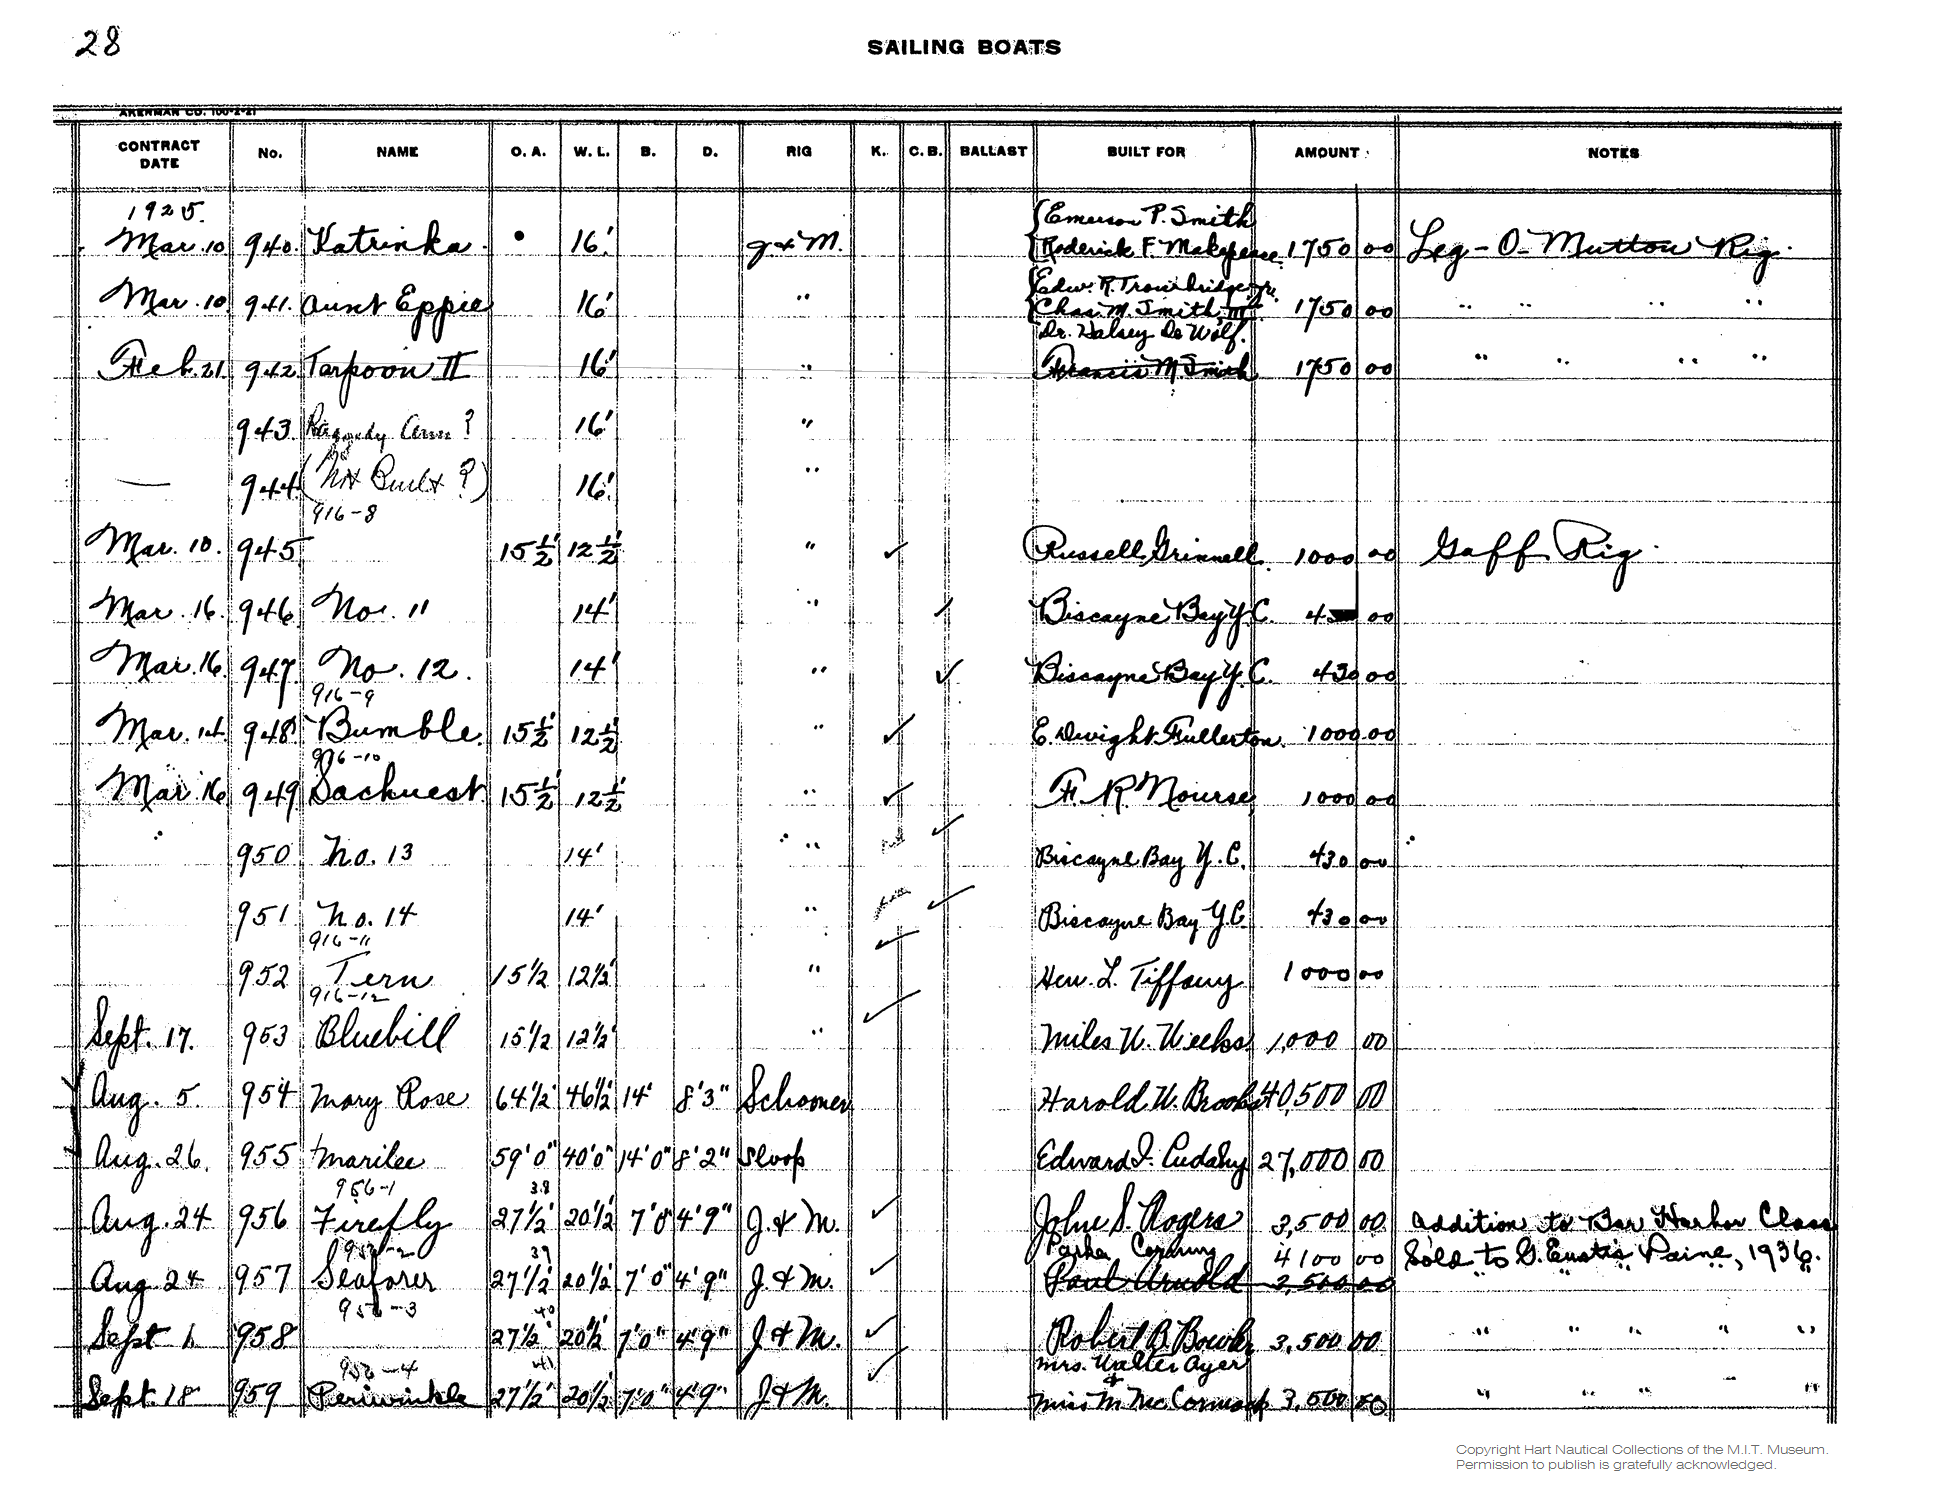 28
SAILING BOATS
AKERMAN CO. 100-2-21
CONTRACT DATE No. NAME O. A. W. L. B. D. RIG K. C. B. BALLAST BUILT FOR AMOUNT NOTES
1925.
{Emerson P. Smith
Mar. 10 940. Katrinka. 16' J & M. {Roderick F. Makepeace. 1750 00 Leg-O-Mutton Rig.
{Edw. R. Trowbridge Jr.
Mar. 10 941. Aunt Eppie 16' " {Chas. M. Smith, III. 1750 00 " " " "
Dr. Halsey De Wolf.
Feb. 21. 942. Tarpoon II 16' " Francis M Smith 1750 00 " " " "
943. Raggedy Ann? 16' "
— 944. (Not Built?) 16' "
916-8
Mar. 10. 945 15½' 12½' " ✓ Russell Grinnell. 1000 00 Gaff Rig.
Mar. 16. 946 No. 11 14' " ✓ Biscayne Bay Y.C. 43 00
Mar. 16. 947. No. 12. 14' " ✓ Biscayne Bay Y.C. 430 00
916-9
Mar. 14. 948 Bumble. 15½' 12½' " ✓ E. Dwight Fullerton. 1000 00
916-10
Mar. 16 949 Sachuest. 15½' 12½' " ✓ F. R. Nourse, 1000 00
950 No. 13 14' " ✓ Biscayne Bay Y.C. 430 00
951 No. 14 14' " ✓ Biscayne Bay Y.C. 430 00
916-11
952 Tern 15½ 12½' " ✓ Hen. L. Tiffany 1000 00
916-12
Sept. 17. 953 Bluebill 15½ 12½' " ✓ Miles W. Weeks 1,000 00
Aug. 5. 954 Mary Rose 64½ 46½' 14' 8'3" Schooner Harold W. Brooks 40,500 00
Aug. 26. 955 Marilee 59'0" 40'0" 14'0" 8'2" Sloop Edward I. Cudahy 27,000 00
956-1 38
Aug. 24 956 Firefly 27½' 20½' 7'0 4'9" J. & M. ✓ John S. Rogers 3,500 00 Addition to Bar Harbor Class
956-2 39 Parker Corning 4100 00 Sold to G. Eustis Paine, 1936.
Aug. 24 957 Seafarer 27½' 20½' 7'0" 4'9" J. & M. ✓ Paul Arnold 3,500 00 " " " "
956-3 40
Sept 1. 958 27½' 20½' 7'0" 4'9" J. & M. ✓ Robert B. Bowler 3,500 00 " " " " "
956-4 41 Mrs. Walter Ayer
&
Sept. 18 959 Periwinkle 27½' 20½' 7'0" 4'9" J. & M. ✓ Miss M. McCormick 3,500 00 " " " " "
Copyright Hart Nautical Collections of the M.I.T. Museum.
Permission to publish is gratefully acknowledged.